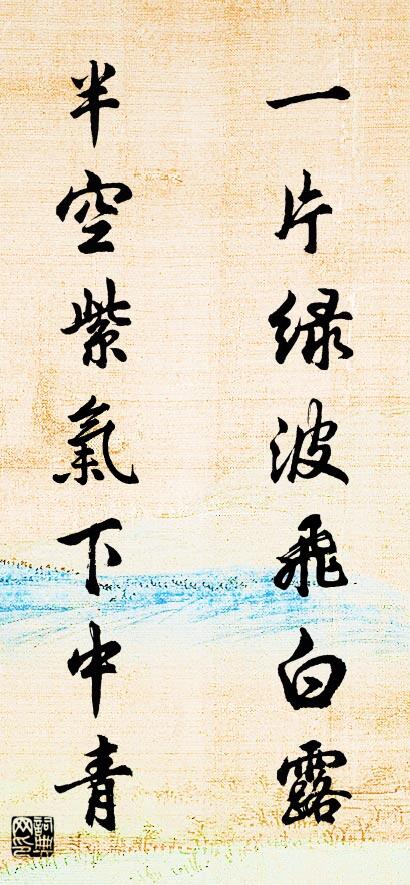 一片綠波飛白露
半空紫氣下中青
詞典網印